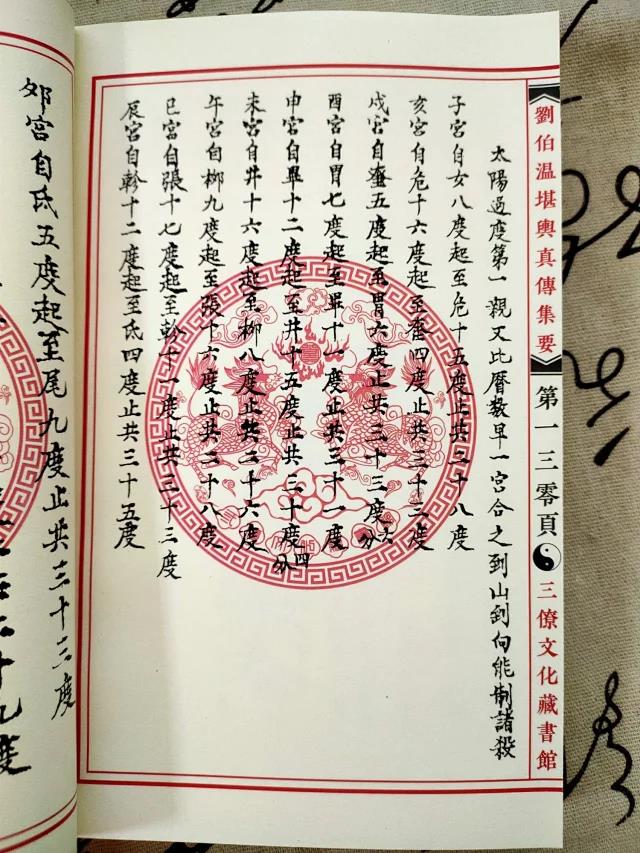 劉伯温堪輿真傳集要
第一三零頁
三僚文化藏書館
太陽過度第一親又比曆数早一宫合之到山到向能制諸殺
子宫自女八度起至危十五度止共二十八度
亥宫自危十六度起至奎四度止共三十三度
戌宫自奎五度起至胃六度止共三十三度六分
酉宫自胃七度起至畢十一度止共三十一度
申宫自畢十二度起至井十五度止共三十度四分
未宫自井十六度起至柳八度止共二十六度
午宫自柳九度起至張十六度止共二十八度
巳宫自張十七度起至軫十一度止共三十三度
辰宫自軫十二度起至氐四度止共三十五度
卯宫自氐五度起至尾九度止共三十三度
二十九度